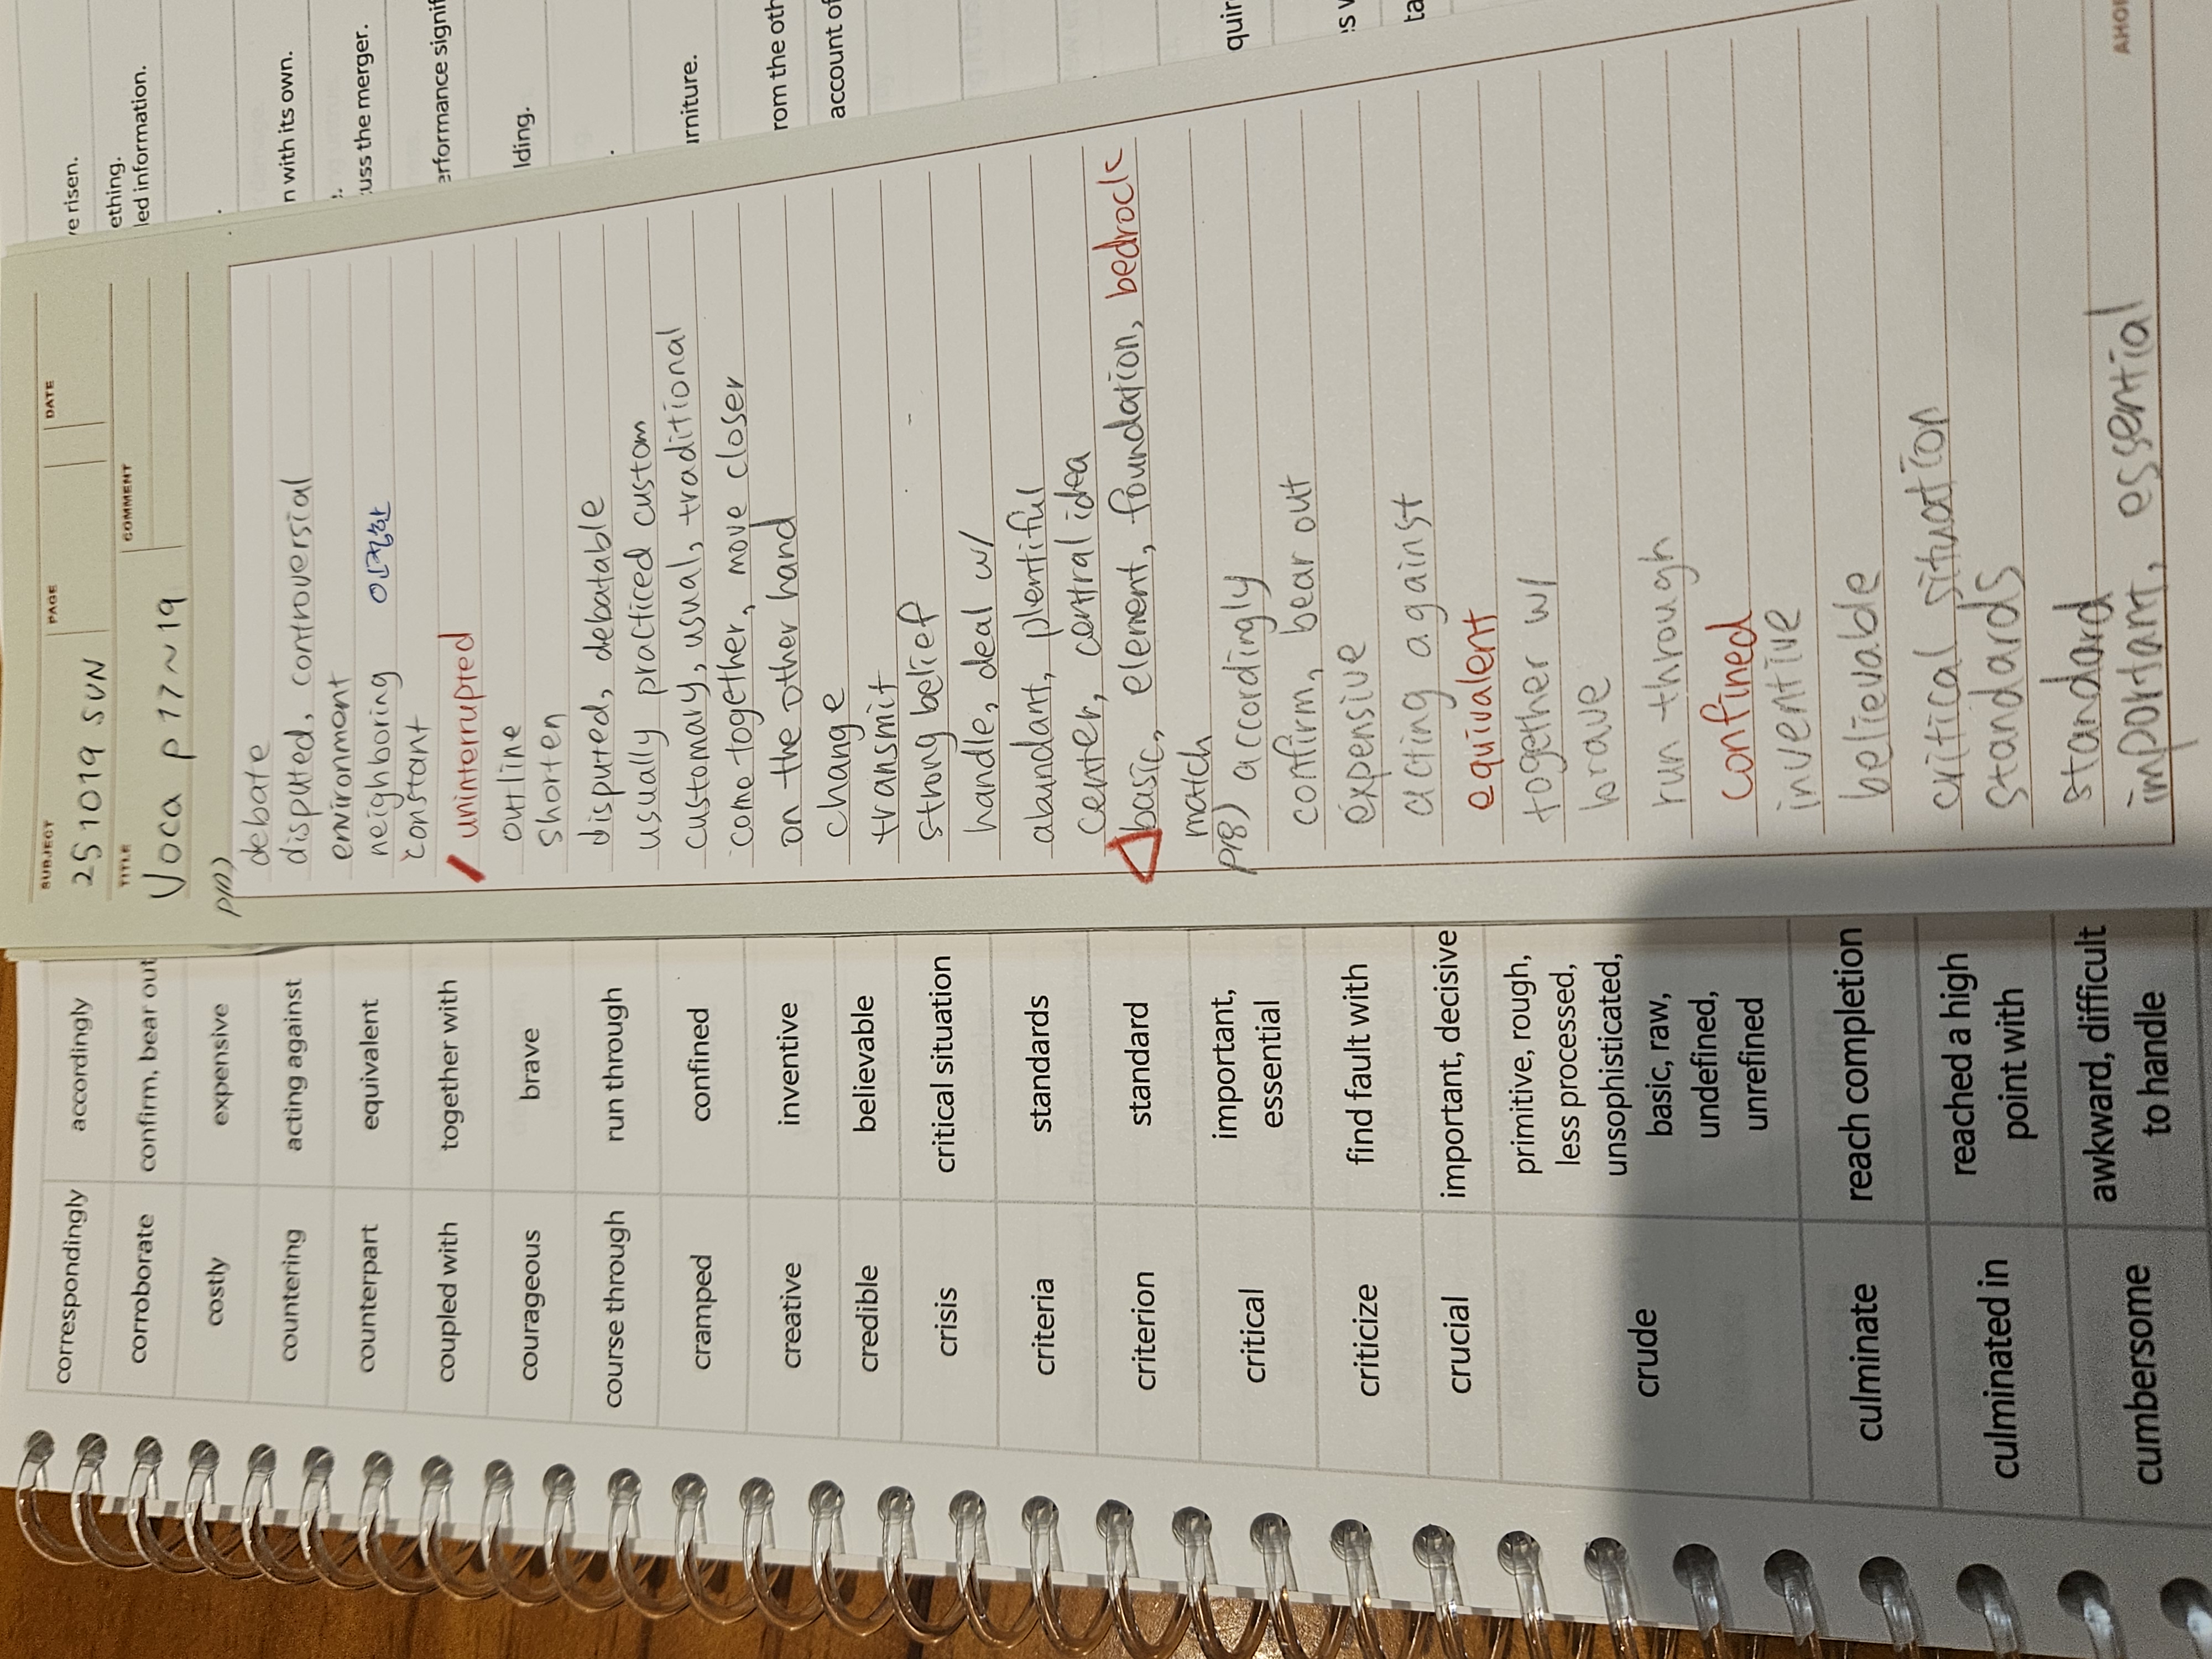 correspondingly accordingly
corroborate confirm, bear out
costly expensive
countering acting against
counterpart equivalent
coupled with together with
courageous brave
course through run through
cramped confined
creative inventive
credible believable
crisis critical situation
criteria standards
criterion standard
critical important,
essential
criticize find fault with
crucial important, decisive
crude primitive, rough,
less processed,
unsophisticated,
basic, raw,
undefined,
unrefined
culminate reach completion
culminated in reached a high
point with
cumbersome awkward, difficult
to handle
SUBJECT PAGE DATE
251019 SUN
TITLE COMMENT
Voca p 17~19
p17)
debate
disputed, controversial
environment
neighboring 인접한
constant
uninterrupted
outline
shorten
disputed, debatable
usually practiced custom
customary, usual, traditional
come together, move closer
on the other hand
change
transmit
strong belief
handle, deal w/
abundant, plentiful
center, central idea
basic, element, foundation, bedrock
match
p18) accordingly
confirm, bear out
expensive
acting against
equivalent
together w/
brave
run through
confined
inventive
believable
critical situation
standards
standard
important, essential
risen.
led information.
n with its own.
uss the merger.
erformance signif
lding.
urniture.
rom the oth
account of